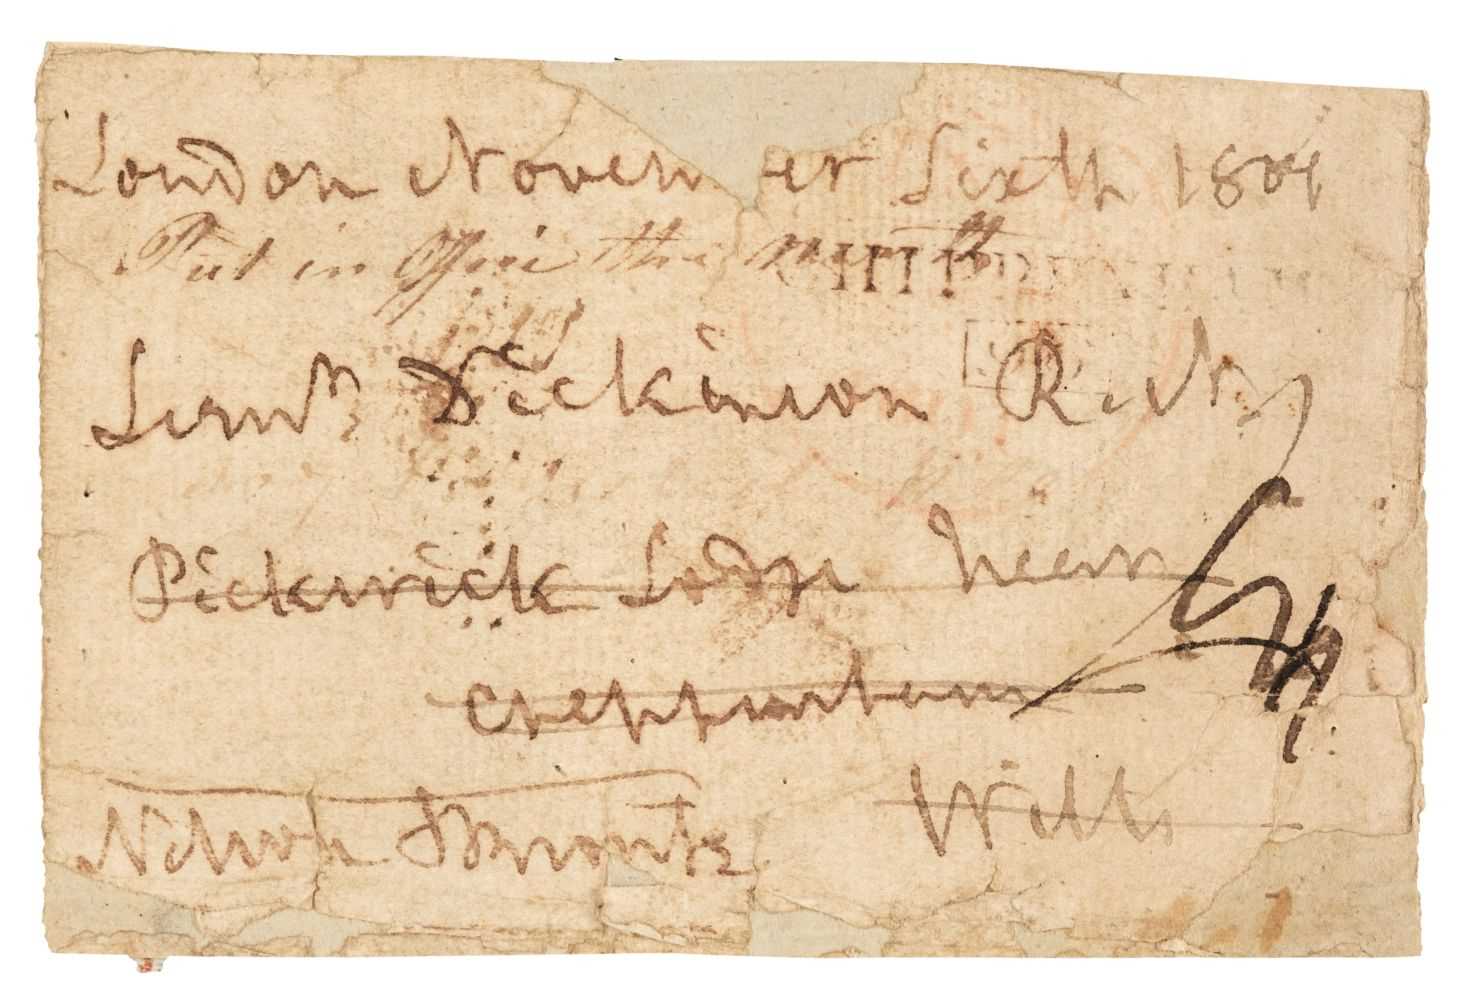 London Novem er Sixth 1801
Put in Office the ninth
CHIPPENHAM
Lieut. Dickinson R. Navy
Pickwick Lodge near
Cheppenham
Wilts
Nelson & Bronte